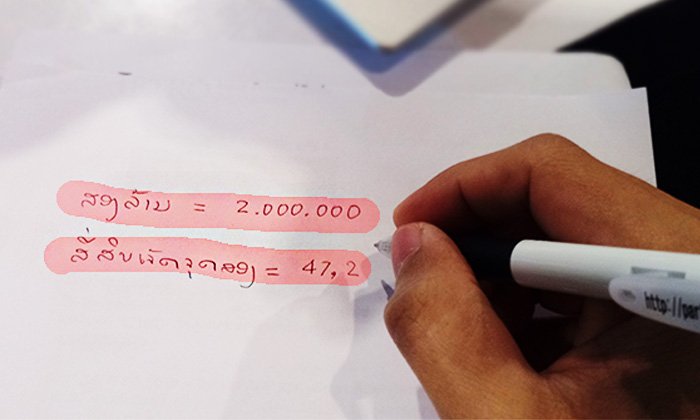 ສອງລ້ານ = 2.000.000
ສີ່ສິບເຈັດຈຸດສອງ = 47,2
http://par